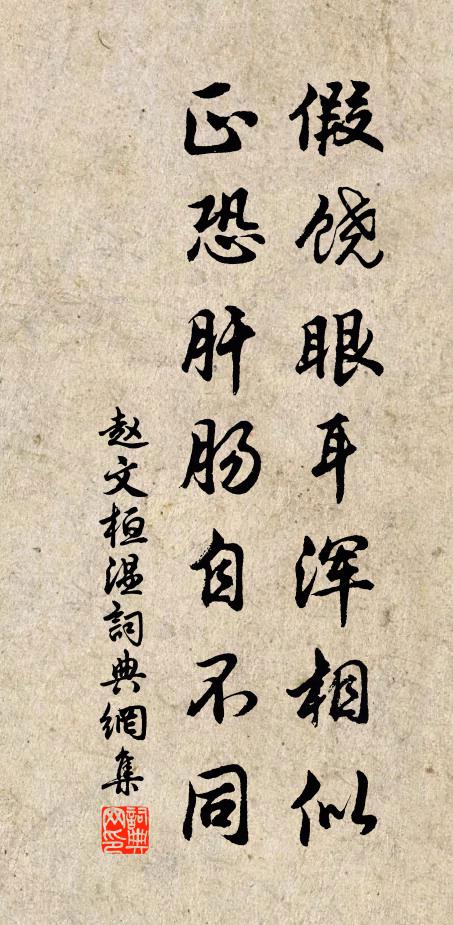 假饶眼耳浑相似
正恐肝肠自不同
赵文桓温詞典網集
詞典网印